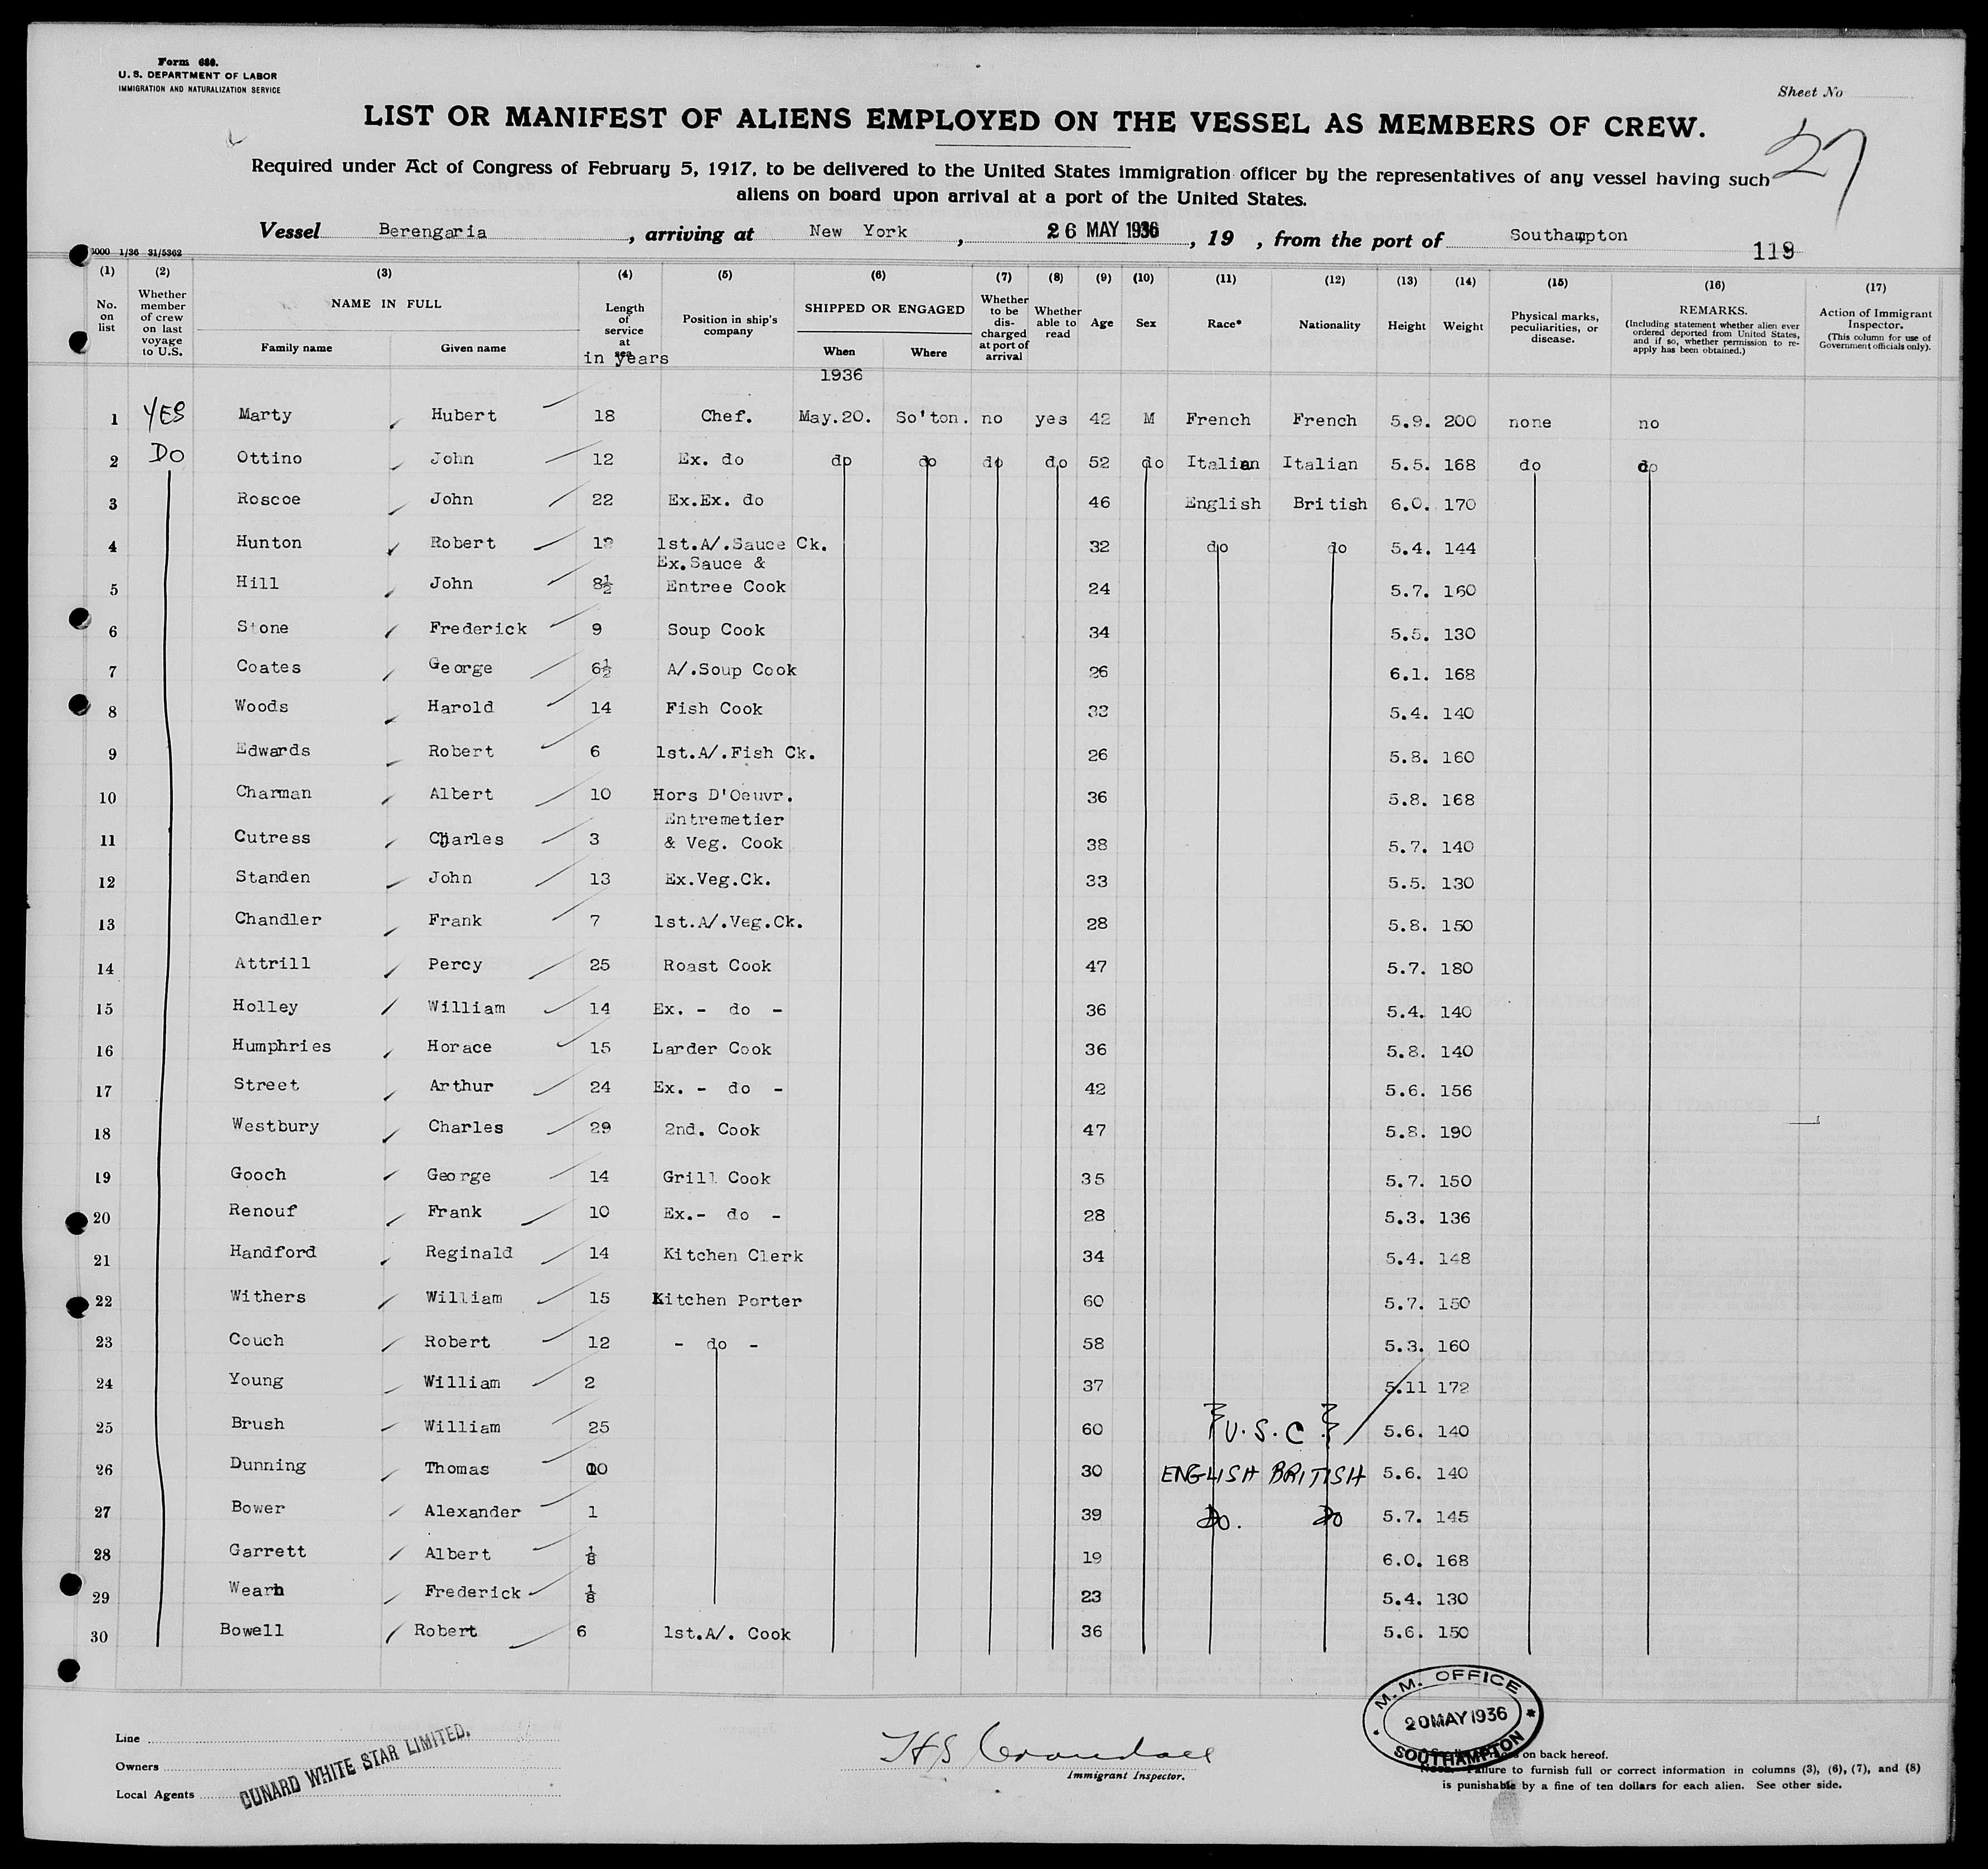 Form 680.
U. S. DEPARTMENT OF LABOR
IMMIGRATION AND NATURALIZATION SERVICE
Sheet No
LIST OR MANIFEST OF ALIENS EMPLOYED ON THE VESSEL AS MEMBERS OF CREW.
27
Required under Act of Congress of February 5, 1917, to be delivered to the United States immigration officer by the representatives of any vessel having such
aliens on board upon arrival at a port of the United States.
Vessel Berengaria , arriving at New York , 26 MAY 1936 , 19 , from the port of Southampton
119
1/36 31/5362
(1) (2) (3) (4) (5) (6) (7) (8) (9) (10) (11) (12) (13) (14) (15) (16) (17)
No. on list
Whether member of crew on last voyage to U.S.
NAME IN FULL
Family name Given name
Length of service at sea
in years
Position in ship's company
SHIPPED OR ENGAGED
When Where
1936
Whether to be discharged at port of arrival
Whether able to read
Age
Sex
Race*
Nationality
Height
Weight
Physical marks, peculiarities, or disease.
REMARKS.
(Including statement whether alien ever ordered deported from United States, and if so, whether permission to re-apply has been obtained.)
Action of Immigrant Inspector.
(This column for use of Government officials only).
1 YES Marty Hubert 18 Chef. May.20. So'ton. no yes 42 M French French 5.9. 200 none no
2 DO Ottino John 12 Ex. do do do do do 52 do Italian Italian 5.5. 168 do do
3 Roscoe John 22 Ex.Ex. do 46 English British 6.0. 170
4 Hunton Robert 1st.A/.Sauce Ck. 32 do do 5.4. 144
5 Hill John 8½ Ex.Sauce & Entree Cook 24 5.7. 160
6 Stone Frederick 9 Soup Cook 34 5.5. 130
7 Coates George 6½ A/.Soup Cook 26 6.1. 168
8 Woods Harold 14 Fish Cook 5.4. 140
9 Edwards Robert 6 1st.A/.Fish Ck. 26 5.8. 160
10 Charman Albert 10 Hors D'Oeuvr. 36 5.8. 168
11 Cutress Charles 3 Entremetier & Veg. Cook 38 5.7. 140
12 Standen John 13 Ex.Veg.Ck. 33 5.5. 130
13 Chandler Frank 7 1st.A/.Veg.Ck. 28 5.8. 150
14 Attrill Percy 25 Roast Cook 47 5.7. 180
15 Holley William 14 Ex. - do - 36 5.4. 140
16 Humphries Horace 15 Larder Cook 36 5.8. 140
17 Street Arthur 24 Ex. - do - 42 5.6. 156
18 Westbury Charles 29 2nd. Cook 47 5.8. 190
19 Gooch George 14 Grill Cook 35 5.7. 150
20 Renouf Frank 10 Ex.- do - 28 5.3. 136
21 Handford Reginald 14 Kitchen Clerk 34 5.4. 148
22 Withers William 15 Kitchen Porter 60 5.7. 150
23 Couch Robert 12 - do - 58 5.3. 160
24 Young William 2 37 5.11 172
25 Brush William 25 60 U.S.C. 5.6. 140
26 Dunning Thomas 10 30 ENGLISH BRITISH 5.6. 140
27 Bower Alexander 1 39 Do. Do 5.7. 145
28 Garrett Albert ⅛ 19 6.0. 168
29 Wearn Frederick ⅛ 23 5.4. 130
30 Bowell Robert 6 1st.A/. Cook 36 5.6. 150
Line
Owners
Local Agents
CUNARD WHITE STAR LIMITED.
Immigrant Inspector.
M.M. OFFICE
20 MAY 1936
SOUTHAMPTON
on back hereof.
Failure to furnish full or correct information in columns (3), (6), (7), and (8)
is punishable by a fine of ten dollars for each alien. See other side.